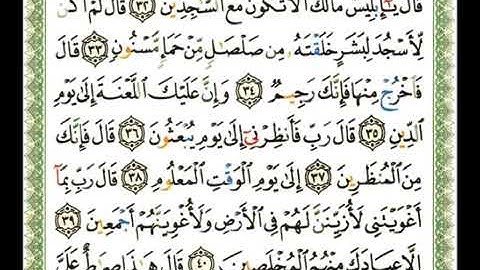 قَالَ يَـٰٓإِبْلِيسُ مَالَكَ أَلَّا تَكُونَ مَعَ ٱلسَّـٰجِدِينَ ٣٢ قَالَ لَمْ أَكُن
لِّأَسْجُدَ لِبَشَرٍ خَلَقْتَهُۥ مِن صَلْصَـٰلٍ مِّنْ حَمَإٍ مَّسْنُونٍ ٣٣ قَالَ
فَٱخْرُجْ مِنْهَا فَإِنَّكَ رَجِيمٌ ٣٤ وَإِنَّ عَلَيْكَ ٱللَّعْنَةَ إِلَىٰ يَوْمِ
ٱلدِّينِ ٣٥ قَالَ رَبِّ فَأَنظِرْنِىٓ إِلَىٰ يَوْمِ يُبْعَثُونَ ٣٦ قَالَ فَإِنَّكَ
مِنَ ٱلْمُنظَرِينَ ٣٧ إِلَىٰ يَوْمِ ٱلْوَقْتِ ٱلْمَعْلُومِ ٣٨ قَالَ رَبِّ بِمَآ
أَغْوَيْتَنِى لَأُزَيِّنَنَّ لَهُمْ فِى ٱلْأَرْضِ وَلَأُغْوِيَنَّهُمْ أَجْمَعِينَ ٣٩
إِلَّا عِبَادَكَ مِنْهُمُ ٱلْمُخْلَصِينَ ٤٠ قَالَ هَـٰذَا صِرَٰطٌ عَلَىَّ